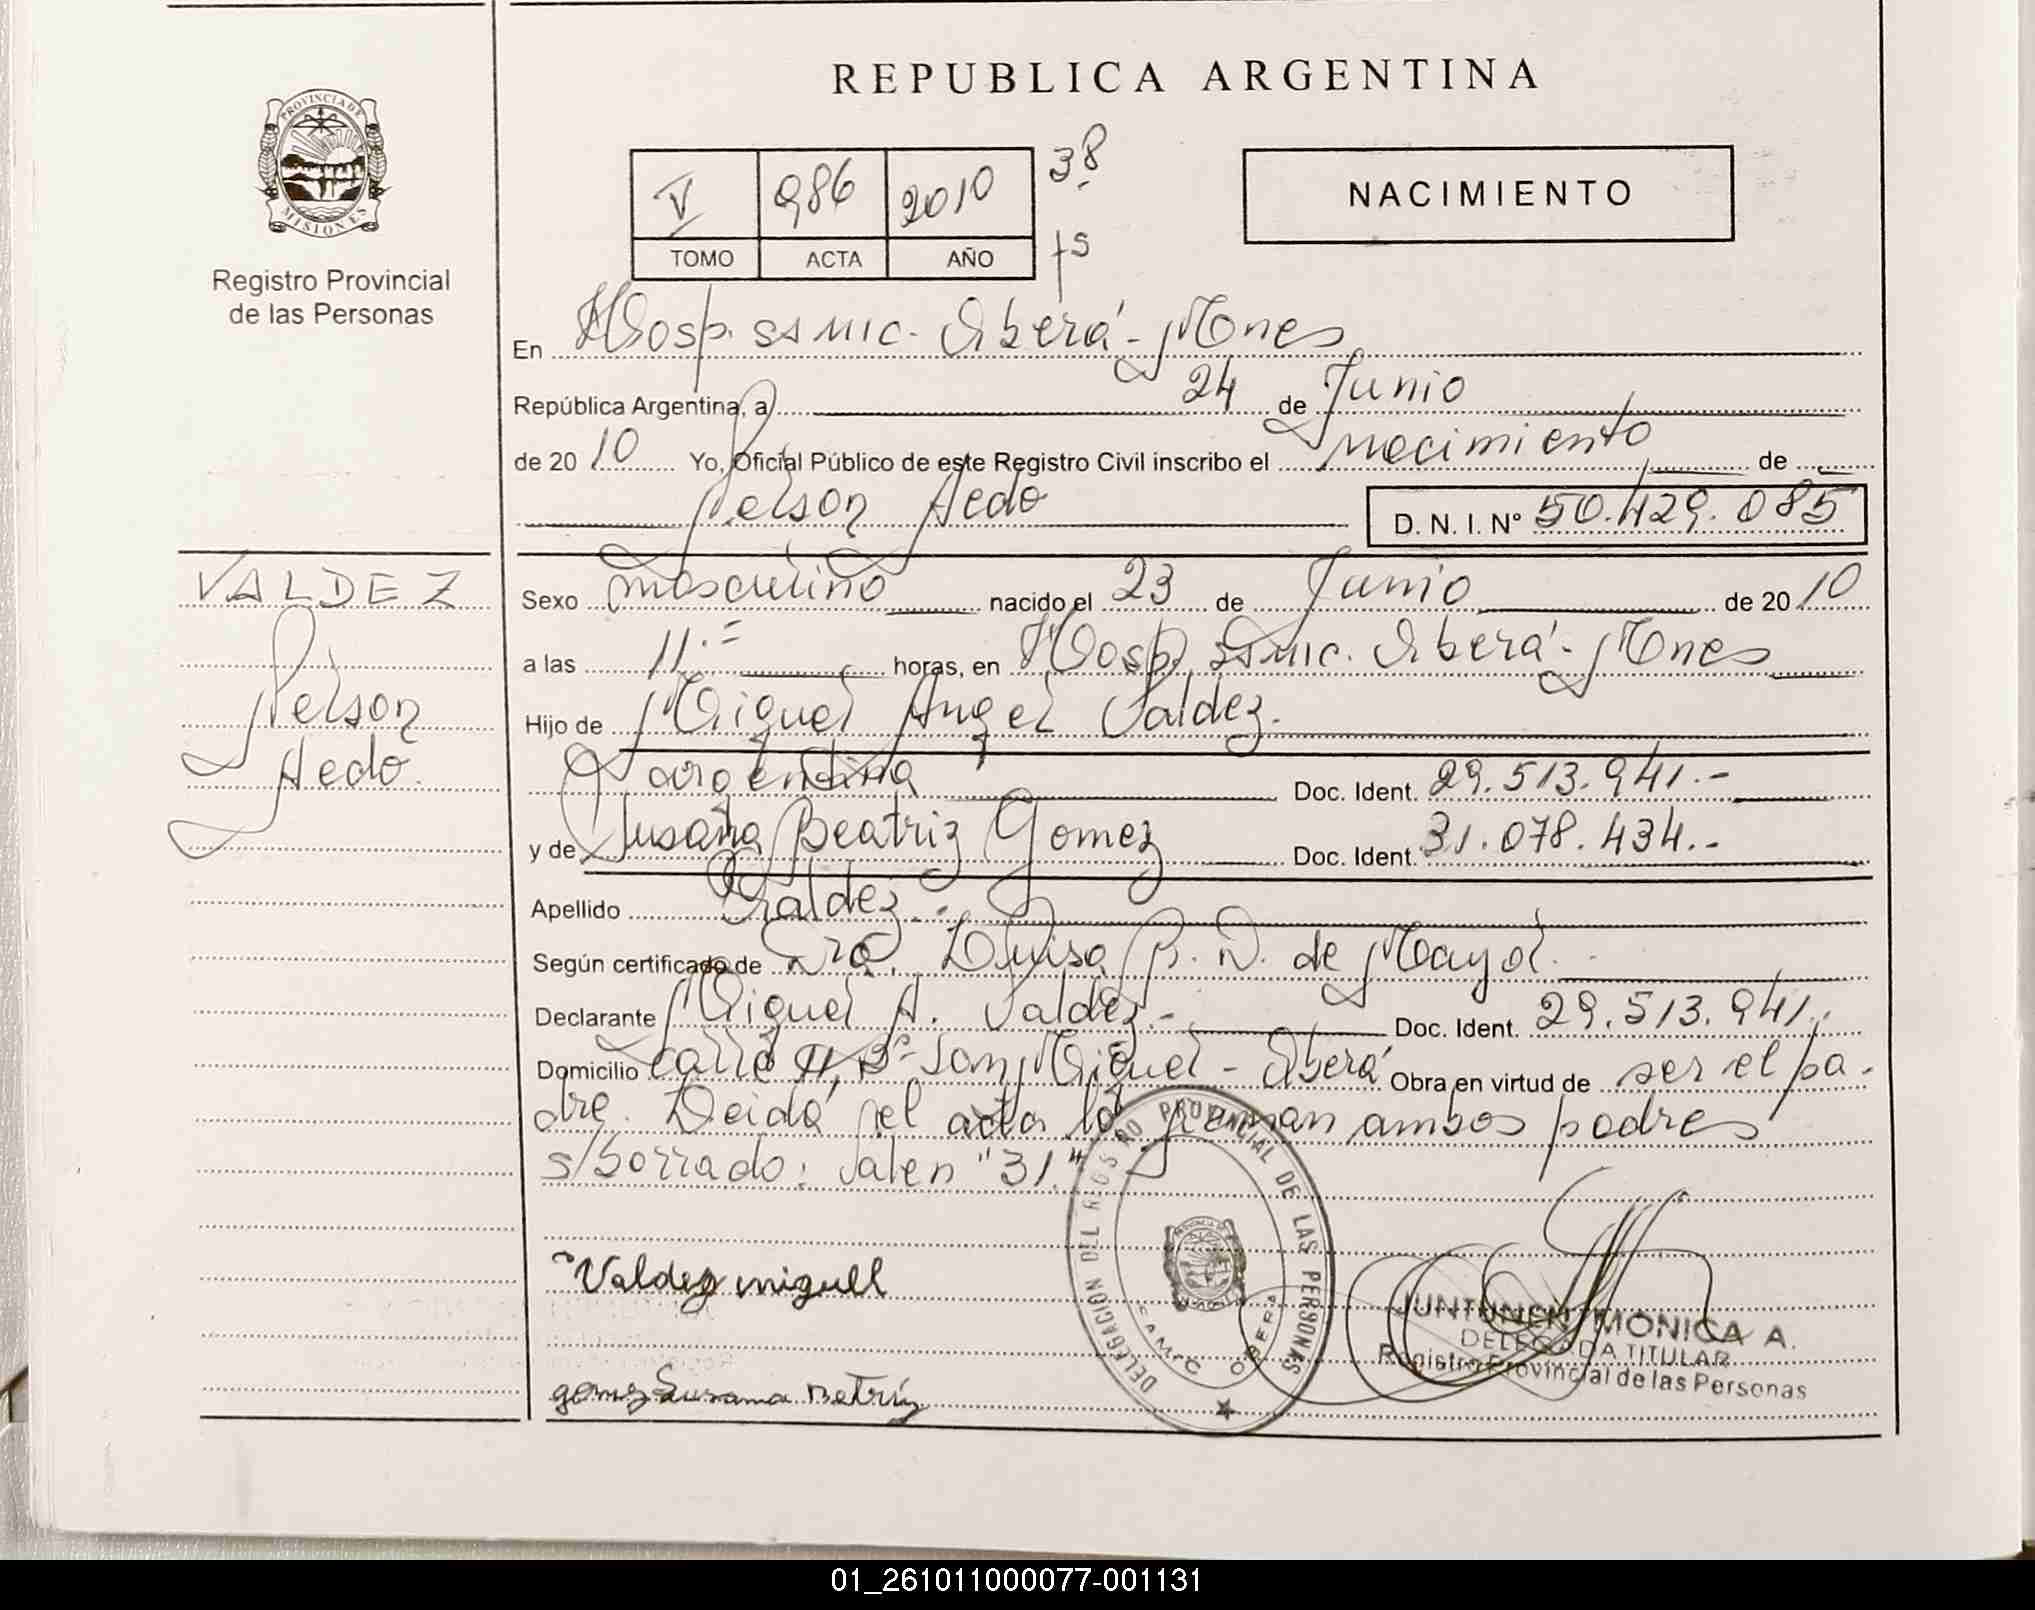 REPUBLICA ARGENTINA
PROVINCIA DE MISIONES
Registro Provincial
de las Personas
V 986 2010 38
TOMO ACTA AÑO fs
NACIMIENTO
En Hosp. SAMIC. Oberá - Mnes
República Argentina, a 24 de Junio
de 2010 Yo, Oficial Público de este Registro Civil inscribo el nacimiento de
Nelson Aedo D.N.I. Nº 50.429.085
VALDEZ
Nelson
Aedo.
Sexo masculino nacido el 23 de Junio de 2010
a las 11.= horas, en Hosp. SAMIC. Oberá - Mnes
Hijo de Miguel Angel Valdez.
argentina Doc. Ident. 29.513.941.-
y de Susana Beatriz Gomez Doc. Ident. 31.078.434.-
Apellido Valdez.-
Según certificado de Dra. Luisa B. D. de Mayol.
Declarante Miguel A. Valdez.- Doc. Ident. 29.513.941.
Domicilio calle Bº San Miguel - Oberá Obra en virtud de ser el pa-
dre. Leida el acta la firman ambos padres
s/borrado: Valen "31."
Valdez miguel
gomez Susana Betriz
DELEGACION DEL REGISTRO PROVINCIAL DE LAS PERSONAS
SAMIC OBERA
JUNTUNEN MONICA A.
DELEGADA TITULAR
Registro Provincial de las Personas
01_261011000077-001131